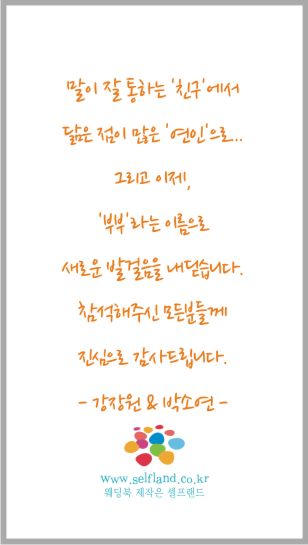 말이 잘 통하는 '친구'에서
닮은 점이 많은 '연인'으로..
그리고 이제,
'부부'라는 이름으로
새로운 발걸음을 내딛습니다.
참석해주신 모든분들께
진심으로 감사드립니다.
- 강장원 & 박소연 -
www.selfland.co.kr
웨딩북 제작은 셀프랜드